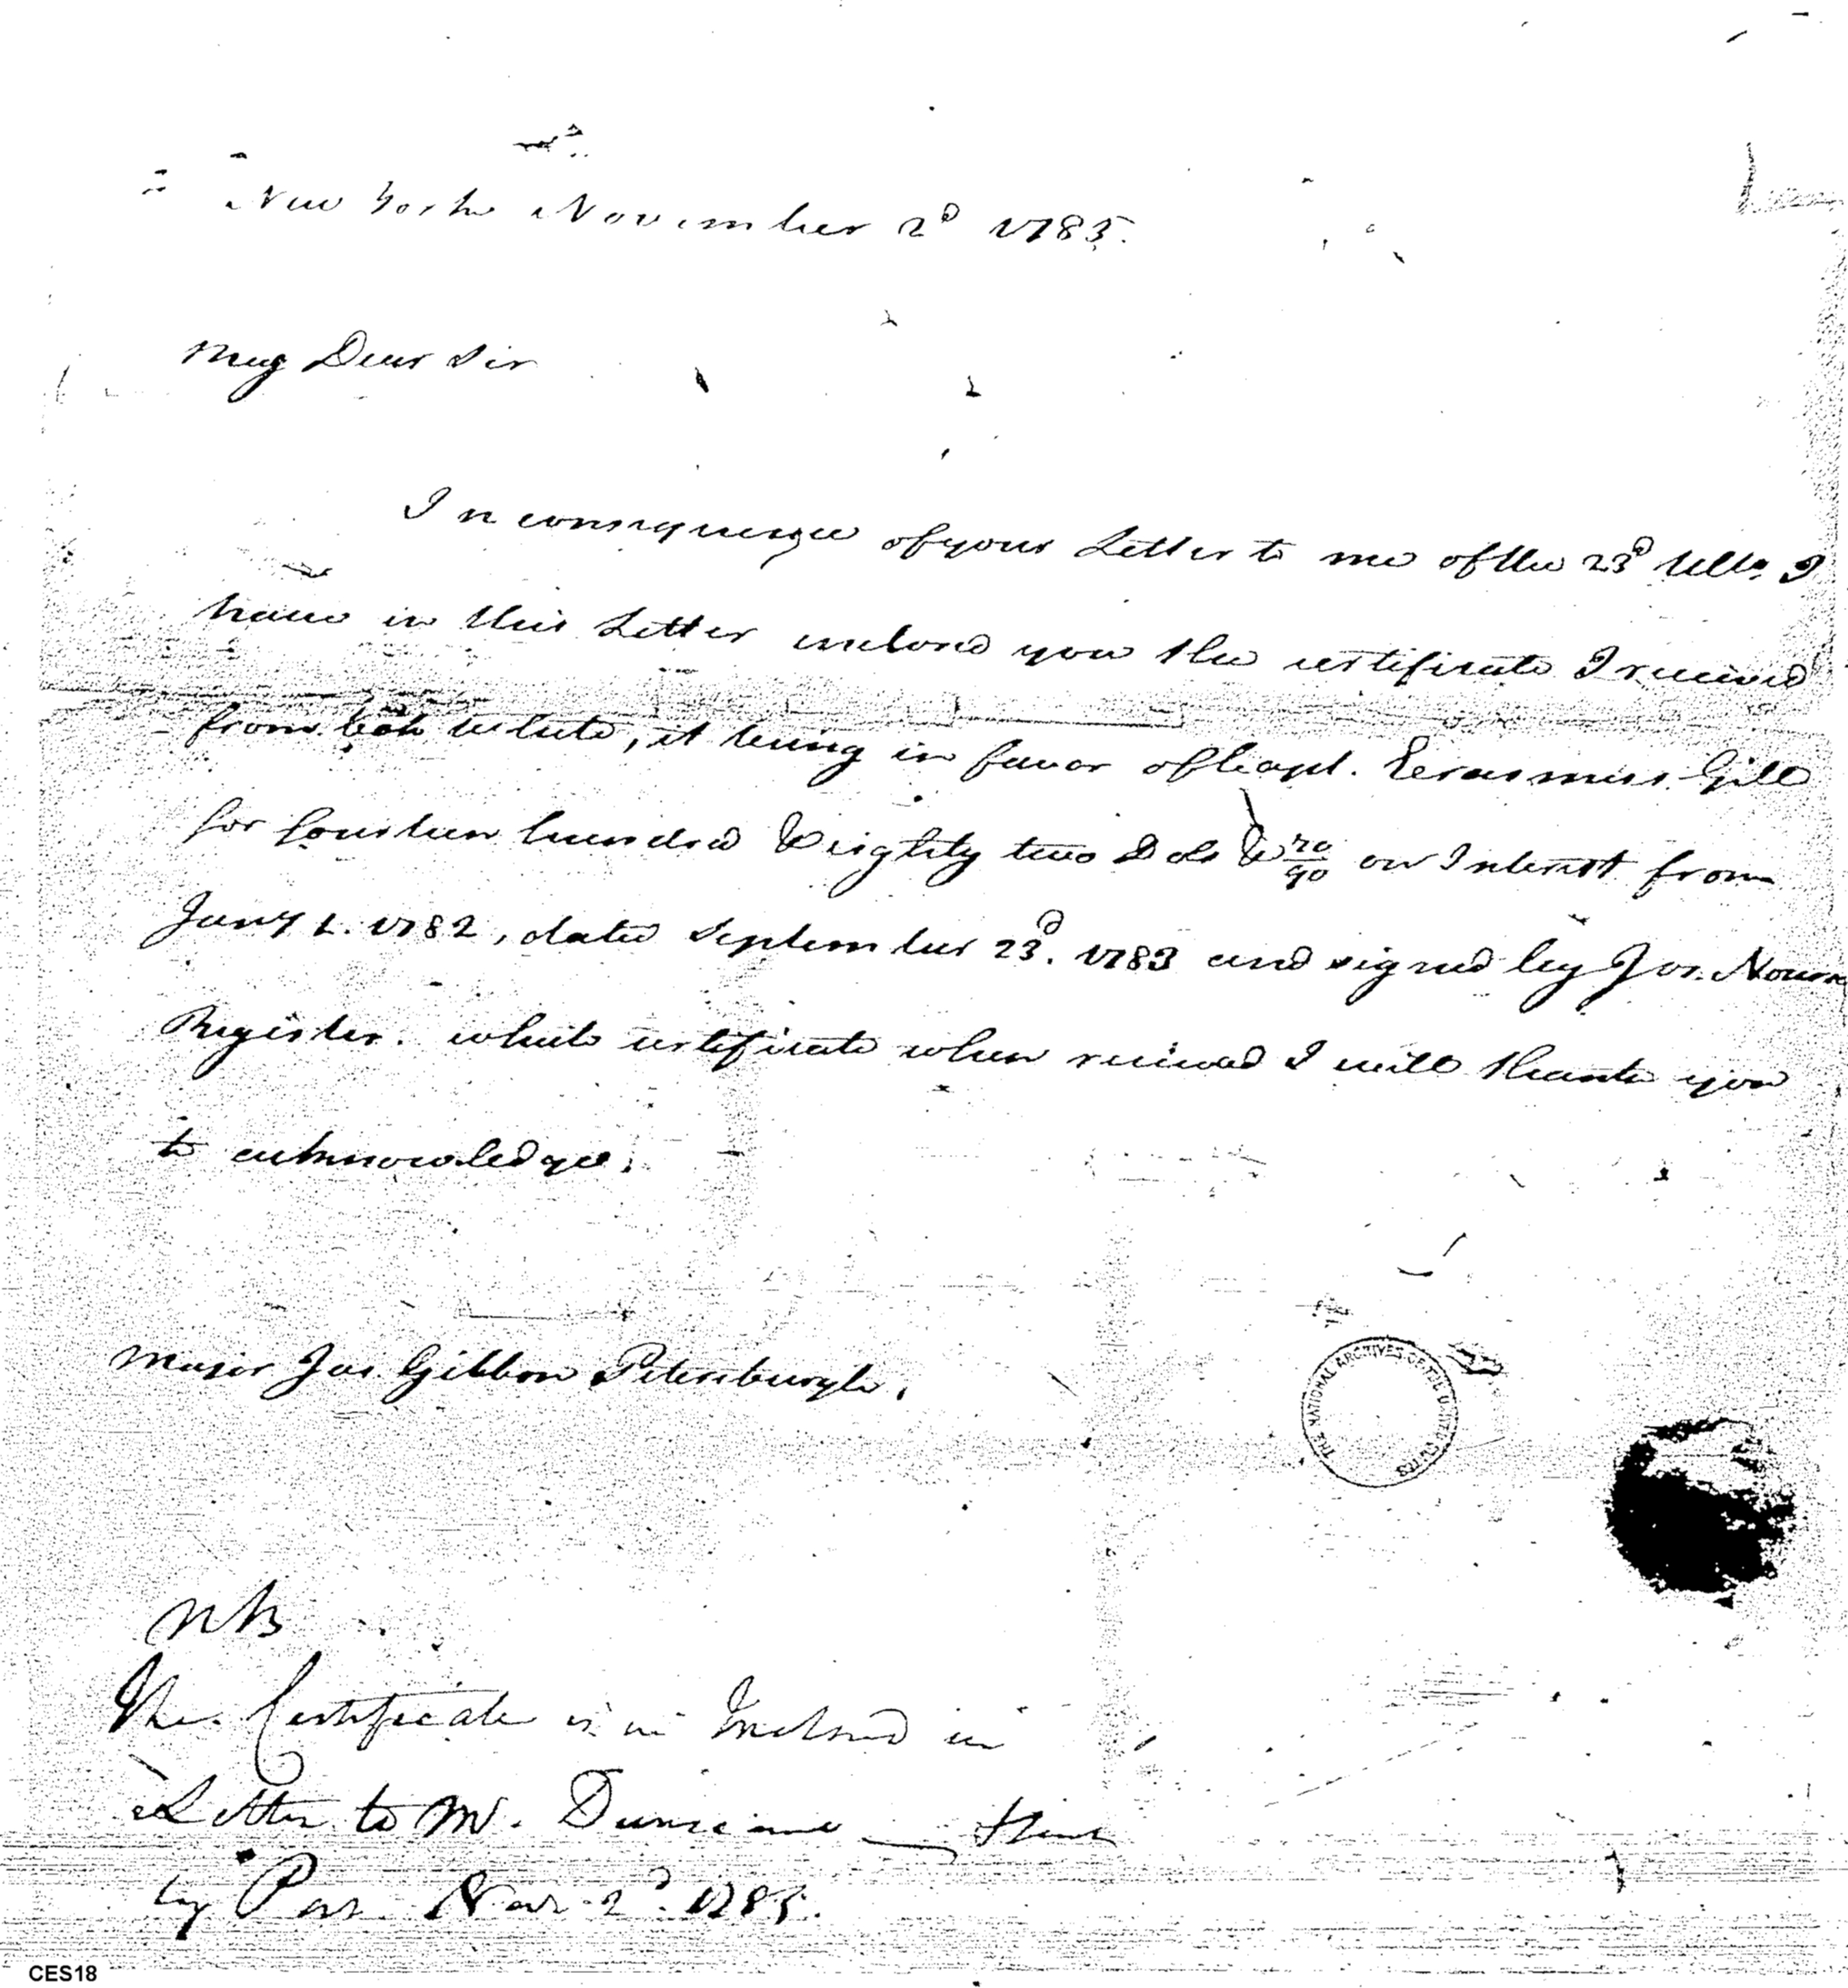 New York November 2d 1785.
My Dear Sir
In consequence of your Letter to me of the 23d Ulto. I
have in this Letter inclosed you the certificate I received
from Col. White, it being in favor of Capt. Erasmus Gill
for fourteen hundred & eighty two Dols & 70/90 on Interest from
Jany 1. 1782, dated September 23d. 1783 and signed by Jos. Nourse
Register. which certificate when received I will thank you
to acknowledge.
Major Jas. Gibbon Petersburgh.
NB
The Certificate is in Inclosed in
a Letter to Mr. Duncan
by Post Nov. 2d. 1785.
THE NATIONAL ARCHIVES OF THE UNITED STATES
CES18